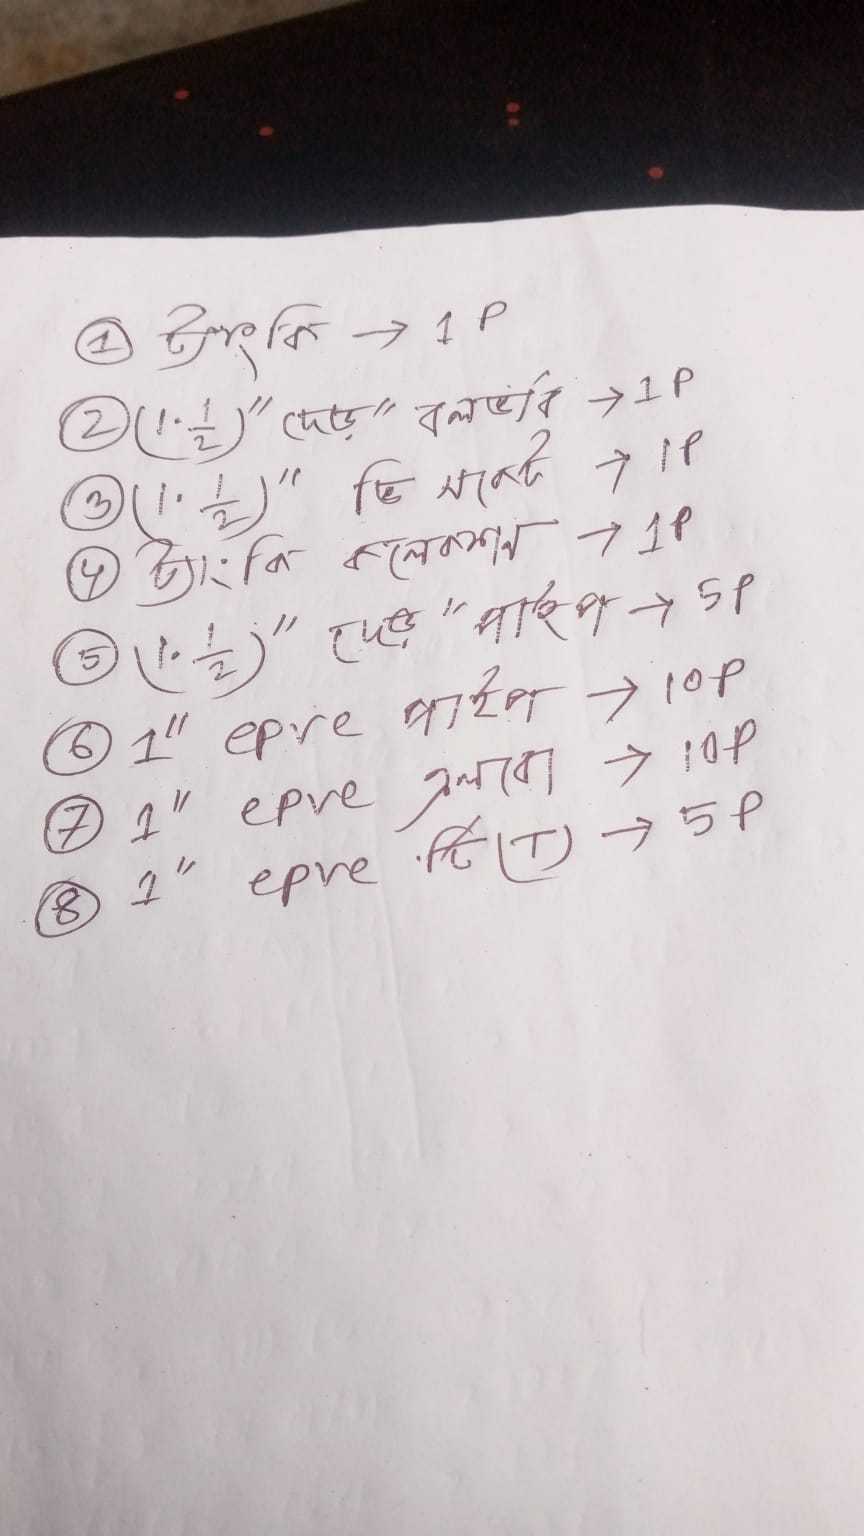 ① ট্যাংকি → 1 P
② (1·1/2)" দেড়" বলভাল্ব → 1P
③ (1·1/2)" ভি সকেট → 1P
④ ট্যাংকি কালেকশান → 1P
⑤ (1·1/2)" দেড়" পাইপ → 5P
⑥ 1" epvc পাইপ → 10P
⑦ 1" epvc এলবো → 10P
⑧ 1" epvc টি (T) → 5P